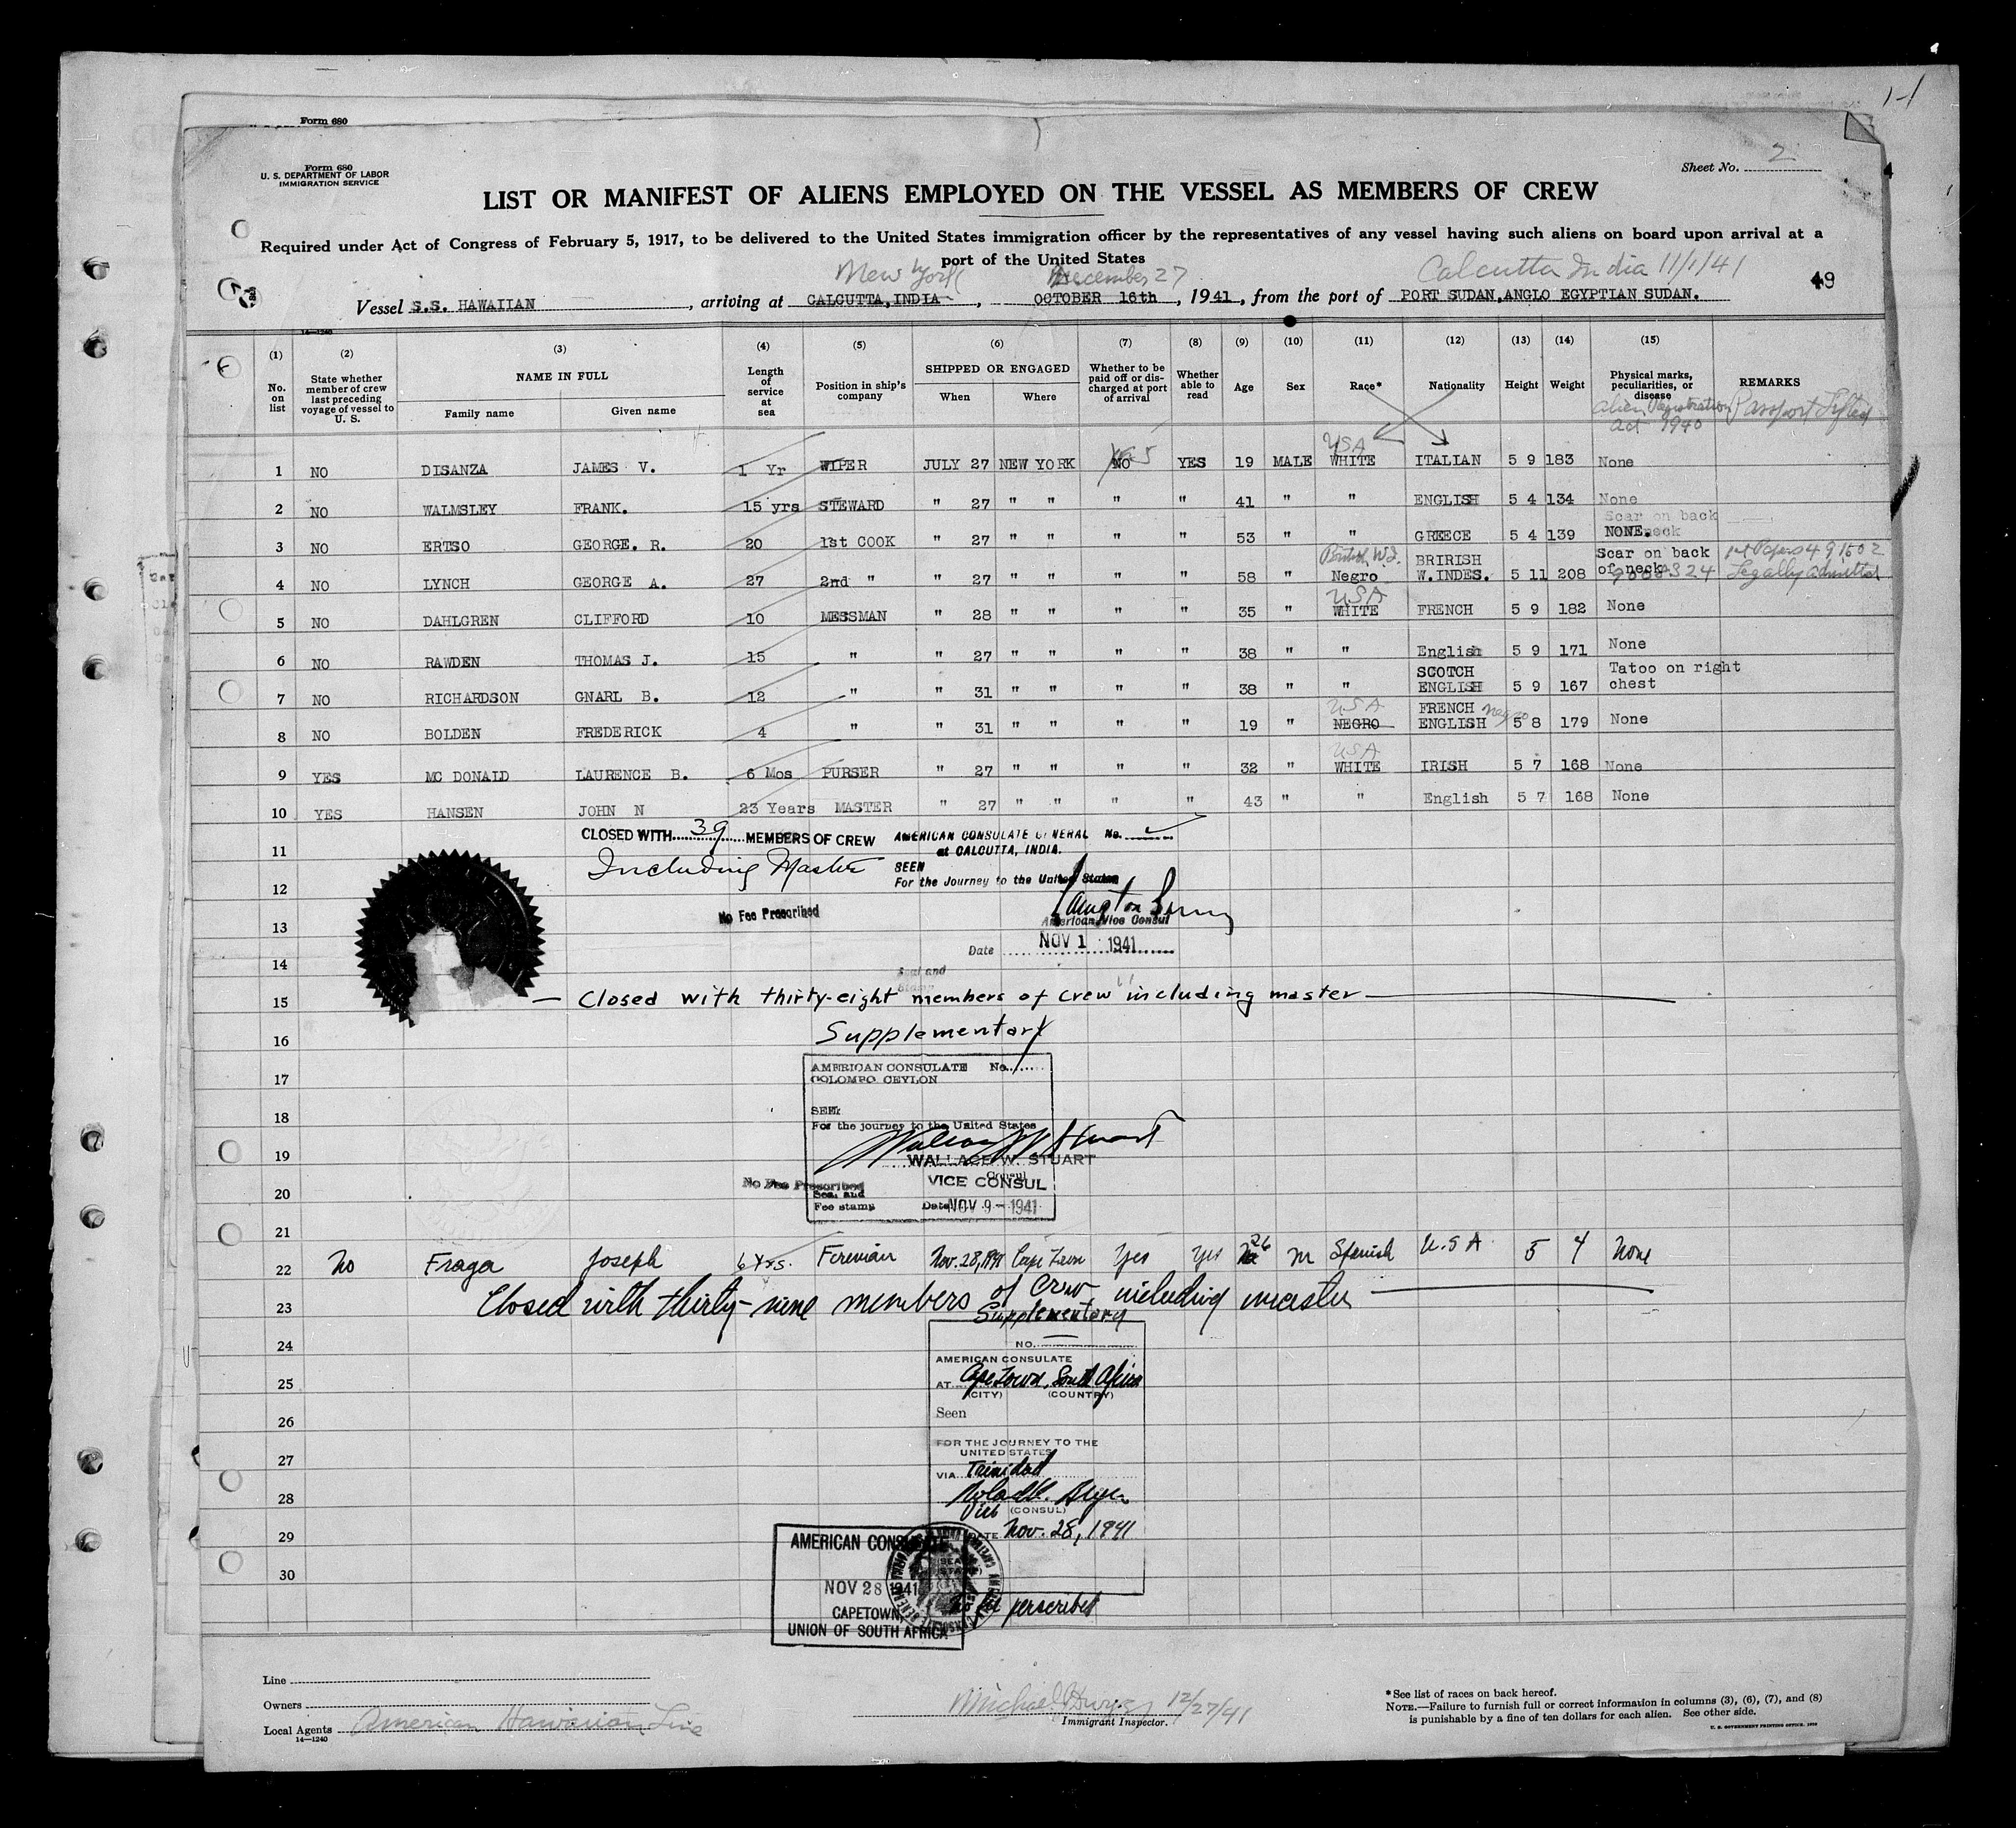 1-1
Form 680
Form 680
U. S. DEPARTMENT OF LABOR
IMMIGRATION SERVICE
Sheet No. 2
4
LIST OR MANIFEST OF ALIENS EMPLOYED ON THE VESSEL AS MEMBERS OF CREW
Required under Act of Congress of February 5, 1917, to be delivered to the United States immigration officer by the representatives of any vessel having such aliens on board upon arrival at a
port of the United States
New York December 27 Calcutta India 11/1/41
Vessel S.S. HAWAIIAN, arriving at CALCUTTA, INDIA, OCTOBER 16th, 1941, from the port of PORT SUDAN, ANGLO EGYPTIAN SUDAN. 49
14—1240
(1) (2) (3) (4) (5) (6) (7) (8) (9) (10) (11) (12) (13) (14) (15)
No. on list
State whether member of crew last preceding voyage of vessel to U. S.
NAME IN FULL
Family name Given name
Length of service at sea
Position in ship's company
SHIPPED OR ENGAGED
When Where
Whether to be paid off or discharged at port of arrival
Whether able to read
Age Sex Race* Nationality Height Weight
Physical marks, peculiarities, or disease
REMARKS
Alien Registration Act 1940 Passport Lifted
USA
1 NO DISANZA JAMES V. 1 Yr WIPER JULY 27 NEW YORK NO YES 19 MALE WHITE ITALIAN 5 9 183 None
2 NO WALMSLEY FRANK. 15 yrs STEWARD " 27 " " " " 41 " " ENGLISH 5 4 134 None
Scar on back
3 NO ERTSO GEORGE. R. 20 1st COOK " 27 " " " " 53 " " GREECE 5 4 139 NONE. neck
British W.I. BRIRISH Scar on back 1st Papers 491502
4 NO LYNCH GEORGE A. 27 2nd " " 27 " " " " 58 " Negro W.INDES. 5 11 208 of neck Legally admitted
USA
5 NO DAHLGREN CLIFFORD 10 MESSMAN " 28 " " " " 35 " WHITE FRENCH 5 9 182 None
6 NO RAWDEN THOMAS J. 15 " " 27 " " " " 38 " " English 5 9 171 None
SCOTCH Tatoo on right
7 NO RICHARDSON GNARL B. 12 " " 31 " " " " 38 " " ENGLISH 5 9 167 chest
USA FRENCH negro
8 NO BOLDEN FREDERICK 4 " " 31 " " " " 19 " NEGRO ENGLISH 5 8 179 None
USA
9 YES MC DONALD LAURENCE B. 6 Mos PURSER " 27 " " " " 32 " WHITE IRISH 5 7 168 None
10 YES HANSEN JOHN N 23 Years MASTER " 27 " " " " 43 " " English 5 7 168 None
CLOSED WITH 39 MEMBERS OF CREW AMERICAN CONSULATE GENERAL No.
11 at CALCUTTA, INDIA.
Including Master SEEN
12 For the Journey to the United States
No Fee Prescribed
13 American Vice Consul
Date NOV 1 1941
14
Seal and
Stamp
15 — Closed with thirty-eight members of crew including master —
16 Supplementary
AMERICAN CONSULATE No.
17 COLOMBO CEYLON
SEEN
18
For the journey to the United States
19 WALLACE W. STUART
Consul
VICE CONSUL
No Fee Prescribed
20 Seal and
Fee stamp Date NOV 9 - 1941
21
22 No Fraga Joseph 6 Yrs. Fireman Nov. 28, 1941 Cape Town Yes Yes 26 M Spanish U.S.A 5 4 None
23 Closed with thirty-nine members of crew including master
Supplementary
24 NO.
AMERICAN CONSULATE
25 AT Cape Town, South Africa
(CITY) (COUNTRY)
26 Seen
FOR THE JOURNEY TO THE
UNITED STATES
27 VIA Trinidad
28
Vice (CONSUL)
29 DATE Nov. 28, 1941
AMERICAN CONSULATE
30
NOV 28 1941
CAPETOWN,
UNION OF SOUTH AFRICA
No fee perscribed
Line
Owners
Local Agents American Hawaiian Line
14—1240
12/27/41
Immigrant Inspector.
*See list of races on back hereof.
NOTE.—Failure to furnish full or correct information in columns (3), (6), (7), and (8)
is punishable by a fine of ten dollars for each alien. See other side.
U. S. GOVERNMENT PRINTING OFFICE